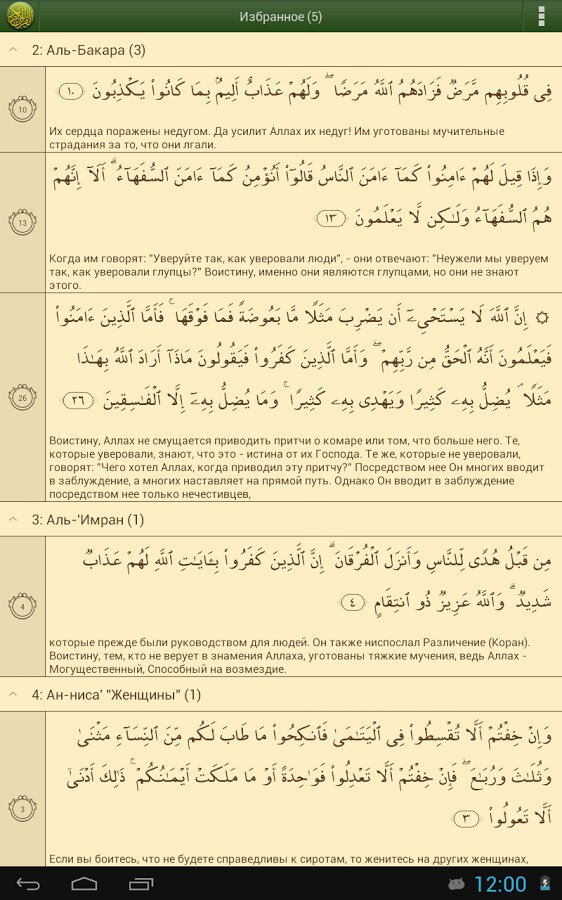 Избранное (5)
2: Аль-Бакара (3)
فِى قُلُوبِهِم مَّرَضٌ فَزَادَهُمُ ٱللَّهُ مَرَضًا ۖ وَلَهُمْ عَذَابٌ أَلِيمٌۢ بِمَا كَانُوا۟ يَكْذِبُونَ ١٠
10
Их сердца поражены недугом. Да усилит Аллах их недуг! Им уготованы мучительные
страдания за то, что они лгали.
وَإِذَا قِيلَ لَهُمْ ءَامِنُوا۟ كَمَآ ءَامَنَ ٱلنَّاسُ قَالُوٓا۟ أَنُؤْمِنُ كَمَآ ءَامَنَ ٱلسُّفَهَآءُ ۗ أَلَآ إِنَّهُمْ
هُمُ ٱلسُّفَهَآءُ وَلَـٰكِن لَّا يَعْلَمُونَ ١٣
13
Когда им говорят: "Уверуйте так, как уверовали люди", - они отвечают: "Неужели мы уверуем
так, как уверовали глупцы?" Воистину, именно они являются глупцами, но они не знают
этого.
۞ إِنَّ ٱللَّهَ لَا يَسْتَحْىِۦٓ أَن يَضْرِبَ مَثَلًا مَّا بَعُوضَةً فَمَا فَوْقَهَا ۚ فَأَمَّا ٱلَّذِينَ ءَامَنُوا۟
فَيَعْلَمُونَ أَنَّهُ ٱلْحَقُّ مِن رَّبِّهِمْ ۖ وَأَمَّا ٱلَّذِينَ كَفَرُوا۟ فَيَقُولُونَ مَاذَآ أَرَادَ ٱللَّهُ بِهَـٰذَا
مَثَلًا ۘ يُضِلُّ بِهِۦ كَثِيرًا وَيَهْدِى بِهِۦ كَثِيرًا ۚ وَمَا يُضِلُّ بِهِۦٓ إِلَّا ٱلْفَـٰسِقِينَ ٢٦
26
Воистину, Аллах не смущается приводить притчи о комаре или том, что больше него. Те,
которые уверовали, знают, что это - истина от их Господа. Те же, которые не уверовали,
говорят: "Чего хотел Аллах, когда приводил эту притчу?" Посредством нее Он многих вводит
в заблуждение, а многих наставляет на прямой путь. Однако Он вводит в заблуждение
посредством нее только нечестивцев,
3: Аль-'Имран (1)
مِن قَبْلُ هُدًى لِّلنَّاسِ وَأَنزَلَ ٱلْفُرْقَانَ ۗ إِنَّ ٱلَّذِينَ كَفَرُوا۟ بِـَٔايَـٰتِ ٱللَّهِ لَهُمْ عَذَابٌ
شَدِيدٌ ۗ وَٱللَّهُ عَزِيزٌ ذُو ٱنتِقَامٍ ٤
4
которые прежде были руководством для людей. Он также ниспослал Различение (Коран).
Воистину, тем, кто не верует в знамения Аллаха, уготованы тяжкие мучения, ведь Аллах -
Могущественный, Способный на возмездие.
4: Ан-ниса' "Женщины" (1)
وَإِنْ خِفْتُمْ أَلَّا تُقْسِطُوا۟ فِى ٱلْيَتَـٰمَىٰ فَٱنكِحُوا۟ مَا طَابَ لَكُم مِّنَ ٱلنِّسَآءِ مَثْنَىٰ
وَثُلَـٰثَ وَرُبَـٰعَ ۖ فَإِنْ خِفْتُمْ أَلَّا تَعْدِلُوا۟ فَوَٰحِدَةً أَوْ مَا مَلَكَتْ أَيْمَـٰنُكُمْ ۚ ذَٰلِكَ أَدْنَىٰٓ
أَلَّا تَعُولُوا۟ ٣
3
Если вы боитесь, что не будете справедливы к сиротам, то женитесь на других женщинах,
12:00